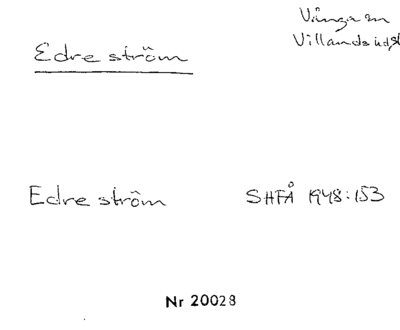 Edre ström
Vånga sn
Villands hd, sk
Edre ström SHFÅ 1948:153
Nr 20028